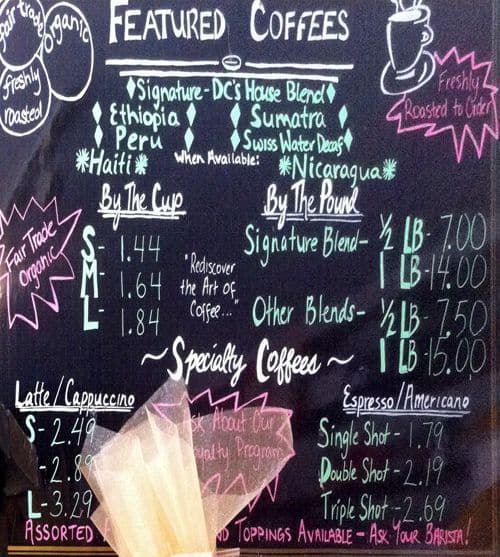 fair trade
organic
freshly
roasted
FEATURED COFFEES
Freshly
Roasted to Order
Signature - DC's House Blend
Ethiopia
Sumatra
Peru
Swiss Water Decaf
When Available:
*Haiti*
*Nicaragua*
Fair Trade
Organic
By The Cup
S - 1.44
M - 1.64
L - 1.84
"Rediscover
the Art of
Coffee..."
By The Pound
Signature Blend - 1/2 LB - 7.00
1 LB - 14.00
Other Blends - 1/2 LB - 7.50
1 LB - 15.00
~ Specialty Coffees ~
Latte/Cappuccino
S - 2.49
- 2.89
L - 3.29
Ask About Our
Loyalty Program
Espresso/Americano
Single Shot - 1.79
Double Shot - 2.19
Triple Shot - 2.69
ASSORTED
TOPPINGS AVAILABLE - ASK YOUR BARISTA!